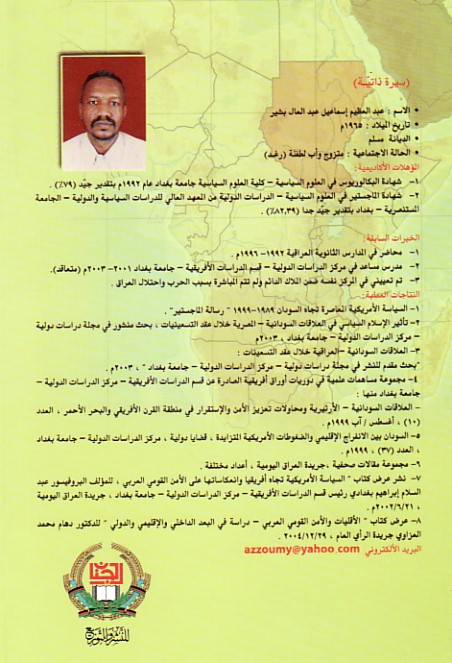 (سيرة ذاتيّة)
• الاسم : عبد العظيم إسماعيل عبد المال بشير
• تاريخ الميلاد : ١٩٦٥م
• الديانة مسلم
• الحالة الاجتماعية : متزوج وأب لطفلة (رغد)
المؤهلات الأكاديمية:
١- شهادة البكالوريوس في العلوم السياسية – كلية العلوم السياسية جامعة بغداد عام ١٩٩٢م بتقدير جيّد (٧٩٪) .
٢- شهادة الماجستير في العلوم السياسية – الدراسات الدولية من المعهد العالي للدراسات السياسية والدولية – الجامعة
المستنصرية – بغداد بتقدير جيّد جدا (٨٢,٣٩٪) .
الخبرات السابقة:
١- محاضر في المدارس الثانوية العراقية ١٩٩٢- ١٩٩٦م .
٢- مدرس مساعد في مركز الدراسات الدولية – قسم الدراسات الأفريقية – جامعة بغداد ٢٠٠١- ٢٠٠٣م (متعاقد).
٣- تم تعييني في المركز نفسه ضمن الملاك الدائم ولم تتم المباشرة بسبب الحرب واحتلال العراق .
النتاجات العلمية:
١- السياسة الأمريكية المعاصرة تجاه السودان ١٩٨٩-١٩٩٩ " رسالة الماجستير" .
٢- تأثير الإسلام السياسي في العلاقات السودانية – المصرية خلال عقد التسعينيات ، بحث منشور في مجلة دراسات دولية
– مركز الدراسات الدولية – جامعة بغداد ، ٢٠٠٣م .
٣- العلاقات السودانية –العراقية خلال عقد التسعينات :
"بحث مقدم للنشر في مجلة دراسات دولية – مركز الدراسات الدولية – جامعة بغداد " ، ٢٠٠٣م .
٤- مجموعة مساهمات علمية في دوريات أوراق أفريقية الصادرة عن قسم الدراسات الأفريقية – مركز الدراسات الدولية –
جامعة بغداد منها :
– العلاقات السودانية – الأرتيرية ومحاولات تعزيز الأمن والإستقرار في منطقة القرن الأفريقي والبحر الأحمر ، العدد
(١٠) ، أغسطس / آب ١٩٩٩م .
٥- السودان بين الانفراج الإقليمي والضغوطات الأمريكية المتزايدة ، قضايا دولية ، مركز الدراسات الدولية – جامعة بغداد
، العدد (٣٧) ، ١٩٩٩م .
٦- مجموعة مقالات صحفية ،جريدة العراق اليومية ، أعداد مختلفة .
٧- نشر عرض كتاب " السياسة الأمريكية تجاه أفريقيا وانعكاساتها على الأمن القومي العربي ، للمؤلف البروفيسور عبد
السلام إبراهيم بغدادي رئيس قسم الدراسات الأفريقية – مركز الدراسات الدولية – جامعة بغداد ، جريدة العراق اليومية
، ٢٠٠٢/٦/٢١م .
٨- عرض كتاب " الأقليات والأمن القومي العربي – دراسة في البعد الداخلي والإقليمي والدولي " للدكتور دهام محمد
العزاوي جريدة الرأي العام ، ٢٠٠٤/١٢/٢٩ .
البريد الألكتروني azzoumy@yahoo.com
للنشر والتوزيع